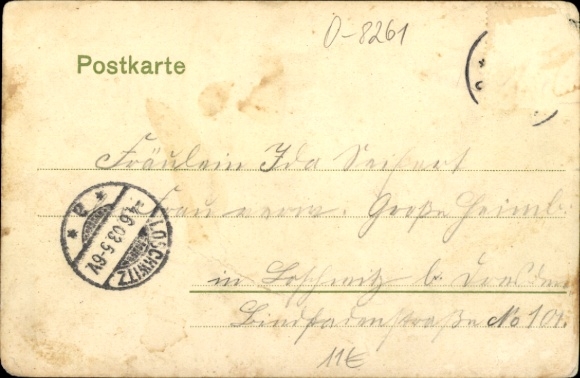 O-8261
Postkarte
Fräulein Ida Seifert
Frau verw. Große Heiml
LOSCHWITZ
4.6.03.5-6V.
in Loschwitz b. Dresden
No 101.
11€